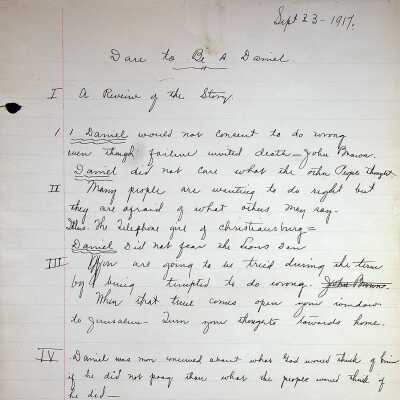 Sept 23 - 1917.
Dare to Be A Daniel.
I A Review of the Story.
1 1 Daniel would not consent to do wrong
even though failure invited death - John Brown.
Daniel did not care what the other People thought.
II Many people are wanting to do right but
they are afraid of what others may say.
Illus. The Telephone girl of Christiansburg =
Daniel Did not fear the Lions den
III You are going to be tried during the term
by being tempted to do wrong. John Brown.
When that time comes open your window
to Jerusalem - Turn your thoughts towards home.
IV Daniel was more concerned about what God would think of him
if he did not pray than what the people would think if
he did -